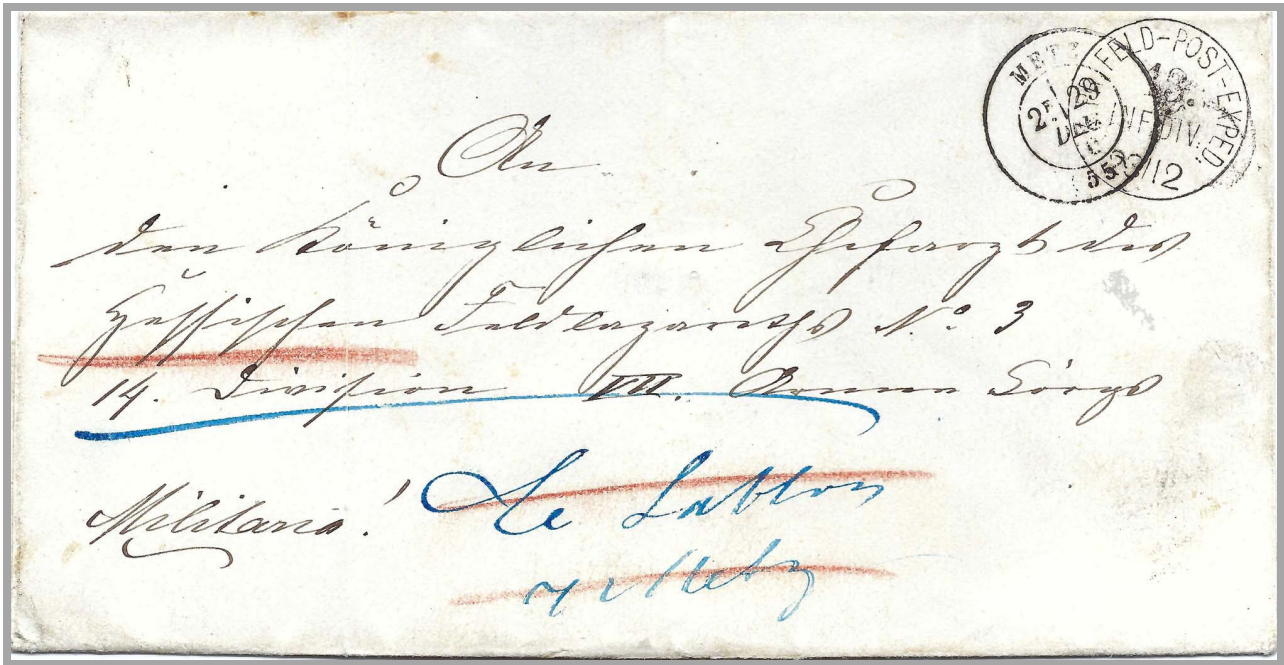 METZ
2E
29
DEC.
(55)
FELD-POST-EXPED.
13.
INF.DIV.
/12
An
den Königlichen Chefarzt des
Hessischen Feldlazareths No. 3
14. Division VII. Armee Corps
Militaria!
Le Sablon
Metz